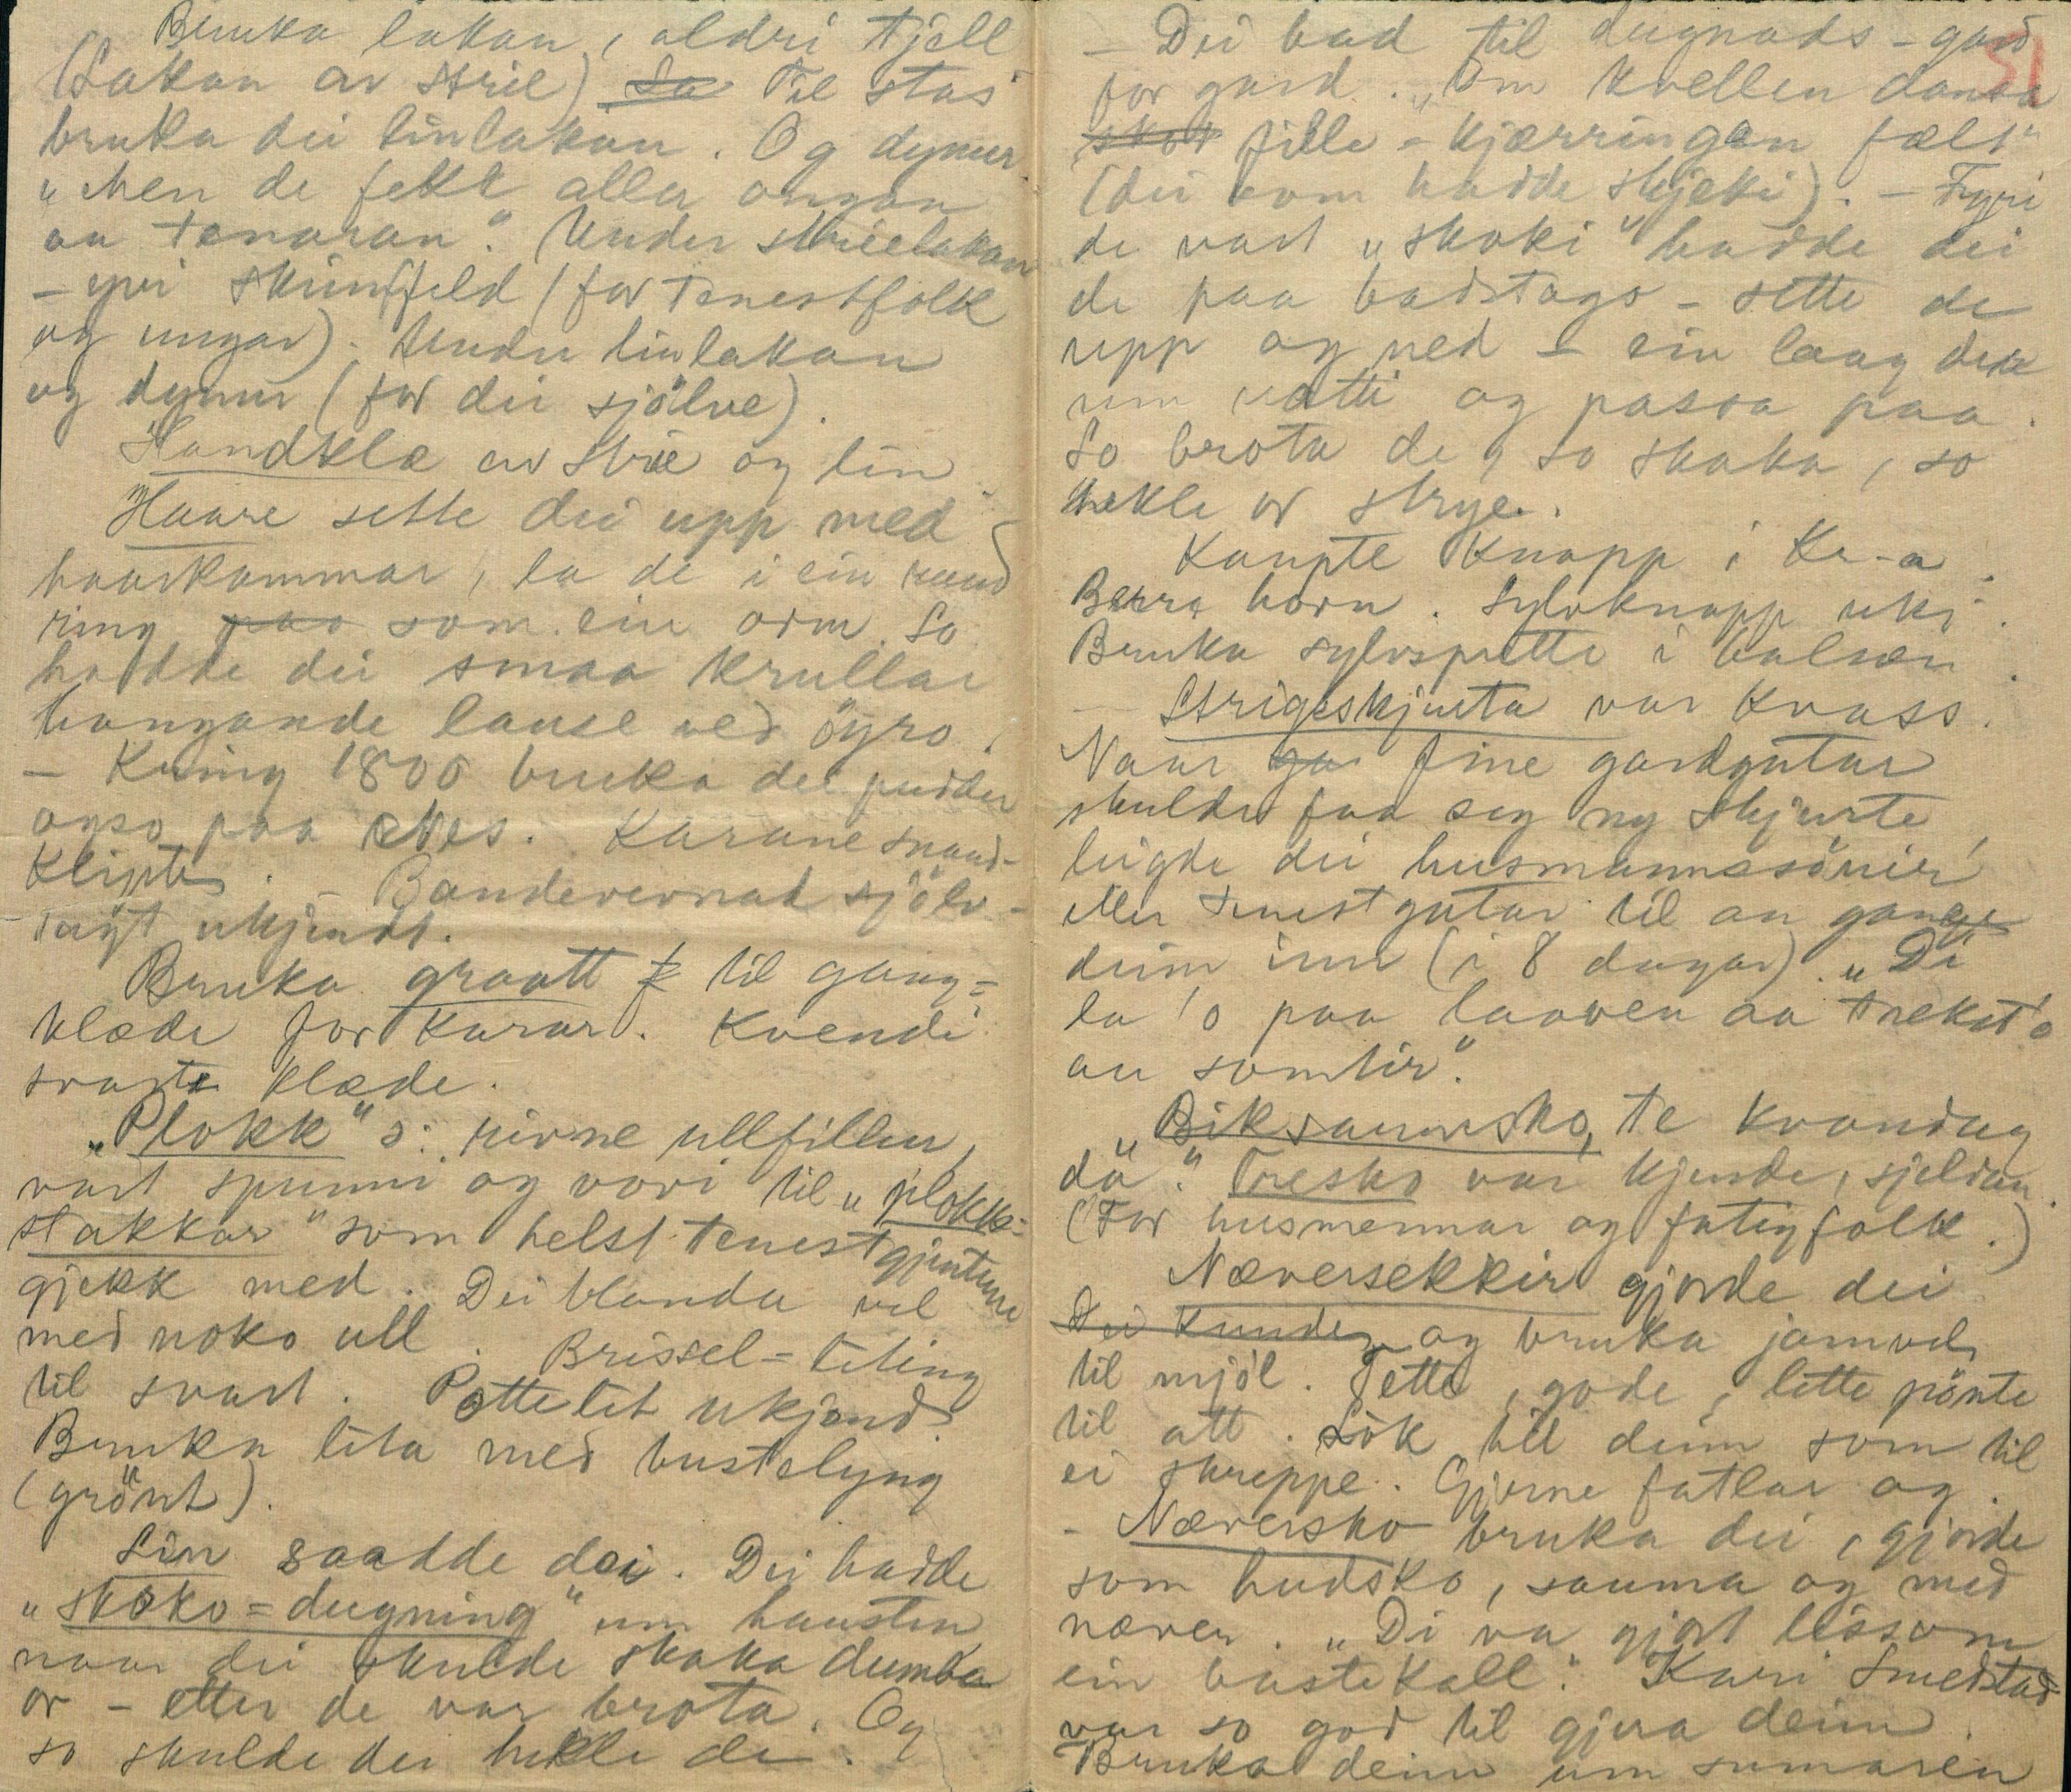 Bruka lakan, aldri tjell
(Lakan av strie) So Til stas
bruka dei linlakan. Og dynur
"Men de fekk aller ongan
aa tenaran". Under strielakan
- yvi skinnfeld (for tenestfolk
og ungar). Under linlakan
og dynur (for dei sjölve).
Handklæ av strie og lin.
Haare sette dei upp med
haarkammar, la de i ein rund
ring paa som ein orm. So
hadde dei smaa krullar
hangande lause ved öyro.
- Kring 1800 bruka dei pudder
ogso paa Nes. Karane snaud-
klipte. - Bandevevnad sjölv-
sagt ukjendt.
Bruka graatt k til gang=
klæde for karar. Kvendi
svarte klæde.
"Plokk" ɔ: rivne ullfillur,
vart spunni og vovi til "plokk=
stakkar" som helst tenestgjentune
gjekk med. Dei blanda vel
med noko ull. Brissel=liting
til svart. Pottelit ukjend.
Bruka lita med bustelyng
(grönt).
Lin saadde dei. Dei hadde
"skoko=dugning" um hausten
naar dei skulde skaka dumba
or - etter de var brota. Og
so skulde dei hekle de.
51
- Dei bad til dugnads - gard
for gard. "Om kvellen dansa
skok fille=kjærringen fælt"
(dei som hadde skjeki). - Fyri
de vart "skoki" hadde dei
de paa badstogo - sette de
upp og ned - ein laag der
um natti og passa paa.
So brota de, so skaka, so
hekle or strye.
Kaupte knapp i Kr-a.
Berre horn. Sylvknapp ukj.
Bruka sylvsprette i halsen.
- Strigeskjurta var kvass.
Naar ga fine gardgutar
skulde faa seg ny skjurte,
leigde dei husmannssönir
eller tenestgutar til an gange
deim inn (i 8 dagar). "Di
la 'o paa laaven aa trekst'o
au somtir".
"Biksaumsko, te kvandag
dä". Tresko var kjende, sjeldan.
(For husmennar og fatigfolk.)
Næversekkir gjorde dei
Dei kunde og bruka jamvel
til mjöl. Tette, gode, lette pönte
til att. Lok till deim som til
ei skreppe. Gjerne fatlar og.
- Næversko bruka dei, gjorde
som hudsko, sauma og med
næver. "Di va gjort lissom
ein bastekall". Kari Smedstad
var so god til gjera deim.
Bruka deim um sumaren